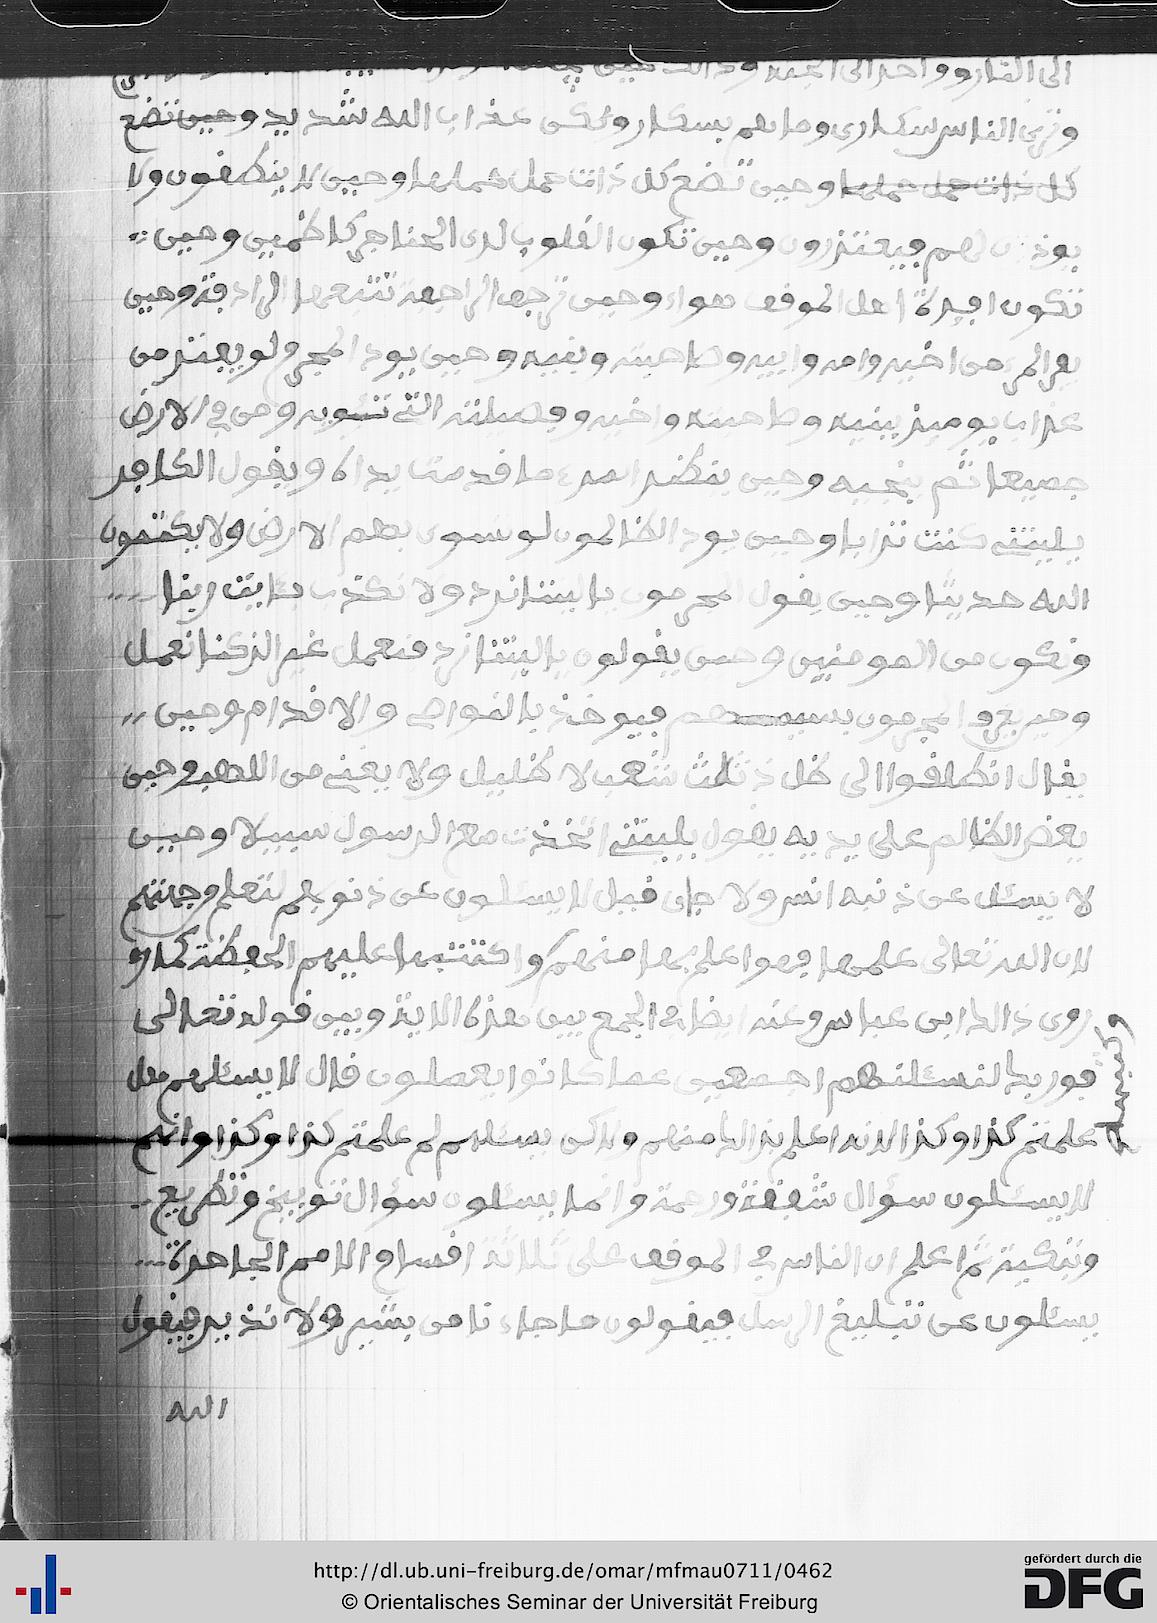 الى النار وواحد الى الجنة وذالك حين
وترى الناس سكارى وما هم بسكار ولكن عذاب الله شديد وحين تضع
كل ذات حمل حملها وحين تضع كل ذات حمل حملها وحين لا ينطفون ولا
يوذن لهم فيعتذرون وحين تكون القلوب لدى الحناجر كاظمين وحين
تكون افيدة اهل الموقف هواء وحين ترجف الراجفة تتبعها الرادفة وحين
يفر المرء من اخيه وامه وابيه وصاحبته وبنيه وحين يود المجرم لو يفتدى من
عذاب يوميذ ببنيه وصاحبته واخيه وفصيلته التى تئويه ومن في الارض
جميعا ثم ينجيه وحين ينظر المرء ما قدمت يداه ويقول الكافر
يليتنى كنت ترابا وحين يود الظالمون لو تسوى بهم الارض ولا يكتمون
الله حديثا وحين يقول المجرمون يا ليتنا نرد ولا نكذب بئايت ربنا
ونكون من المومنين وحين يقولون يا ليتنا نرد فنعمل غير الذى كنا نعمل
وحين يعرف المجرمون بسيمهم فيوخذ بالنواصى والاقدام وحين
يقال انطلقوا الى ظل ذى ثلث شعب لا ظليل ولا يغنى من اللهب وحين
يعض الظالم على يديه يقول يليتنى اتخذت مع الرسول سبيلا وحين
لا يسئل عن ذنبه انس ولا جان قيل لا يسئلون عن ذنوبهم لتعلم وجهتهم
لان الله تعالى علمها فهو اعلم بها منهم واكتتبها عليهم الحفظة كما
روى ذالك ابن عباس وعنه ايضا في الجمع بين هذه الاية وبين قوله تعالى
فوربك لنسئلنهم اجمعين عما كانوا يعملون قال لا يسئلهم هل
عملتم كذا وكذا لانه اعلم بذالك منهم ولاكن يسئلهم لم عملتم كذا وكذا وانهم
لا يسئلون سؤال شفقة ورحمة وانما يسئلون سؤال توبيخ وتقريع
وتبكيت ثم اعلم ان الناس في الموقف على ثلاثة اقسام الامم الجاهدة
يسئلون عن تبليغ الرسل فيقولون ما جاءنا من بشير ولا نذير فيقول
الله
http://dl.ub.uni-freiburg.de/omar/mfmau0711/0462
© Orientalisches Seminar der Universität Freiburg
gefördert durch die
DFG